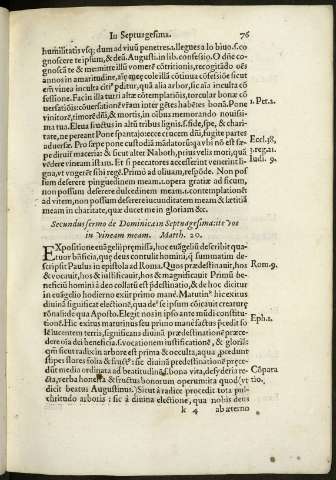 In Septuagesima. 76
humilitatis vsq; dum ad viuũ penetres .i. llegues a lo biuo .s. co
gnoscere te ipsum, & deũ. August. in lib. confessiõ. O dñe co-
gnoscã te & memitte illũ vomere cõtritionis, recogitãdo oẽs
annos in amaritudine, aĩę meę cole illã cõtinua cõfessiõe sicut
em vinea inculta citi' perditur, quã alia arbor, sic aĩa inculta cõ
fessione. Fac in illa turri altæ cõtemplatiõis, torcular bonæ cõ
uersatiõis: cõuersationẽ vr̃am inter gẽtes habẽtes bonã. Pone 1. Pet. 2.
vinitorẽ, timorẽ dñi, & mortis, in oĩbus memorando nouissi-
ma tua. Eleua fructus in altũ tribus lignis .s. fide, spe, & chari-
tate, ne pereant Pone spantajo .i. ecce crucem dñi, fugite partes
aduersæ. Prõ sæpe pone custodiã mãdatorũ q̃a vbi nõ est sæ- Eccl. 38,
pe diruit maceriã: & sicut alter Naboth, prius velis mori, quã 3. reg. 21.
vineam vẽdere istam. Et si peccatores accesserint venerint li- Iudi. 9.
gna, vt vogerẽt sibi regẽ. Primò ad oliuam, respõde. Non pos
sum deserere pinguedinem meam .i. opera gratiæ ad ficum,
non possum deserere dulcedinem meam .i. contemplationis
ad vitem, non possum deserere iucunditatem meam & lætitiã
meam in charitate, quæ ducet me in gloriam &c.
Secundus sermo de Dominica in Septuagesima: ite & vos
in vineam meam. Matth. 20.
EXpositione euãgelij premissa, hoc euãgeliũ describit qua-
tuor bñficia, quę deus contulit homini, q̃ summatim de-
scripsit Paulus in epistola ad Roma. Quos prædestinauit, hos Rom. 9.
& vocauit, hos & iustificauit, hos & magnificauit Primũ be-
neficiũ homini à deo collatũ est p̃destinatio, & de hoc dicitur
in euãgelio hodierno exiit primo manè. Matutin' hic exitus
diuinã significat electionẽ, qua de' se ipsum cõicauit creaturę
rõnali: de qua Aposto. Elegit nos in ipso ante mũdi constitu- Eph. 1.
tionẽ. Hic exitus matutinus seu primo manè factus prẽdit so
lẽ lucentem terris, significans diuinã prædestinationẽ præce-
dere oĩa dei beneficia .s. vocationem iustificationẽ, & gloriã:
qm̃ sicut radix in arbore est prima & occulta, aqua procedunt
stipes flores folia & fruct': sic diuina prędestinationẽ pręce-
dũt media ordinata ad beatitudinẽ .s. bona vita, desyderia re- Cõpara
cta, verba honesta & fructus bonorum operum ita quod (vt tio.
dicit beatus Augustinus.) Sicut à radice procedit tota pul-
chritudo arboris: sic à diuina electione, qua nobis deus
k 4 ab æterno